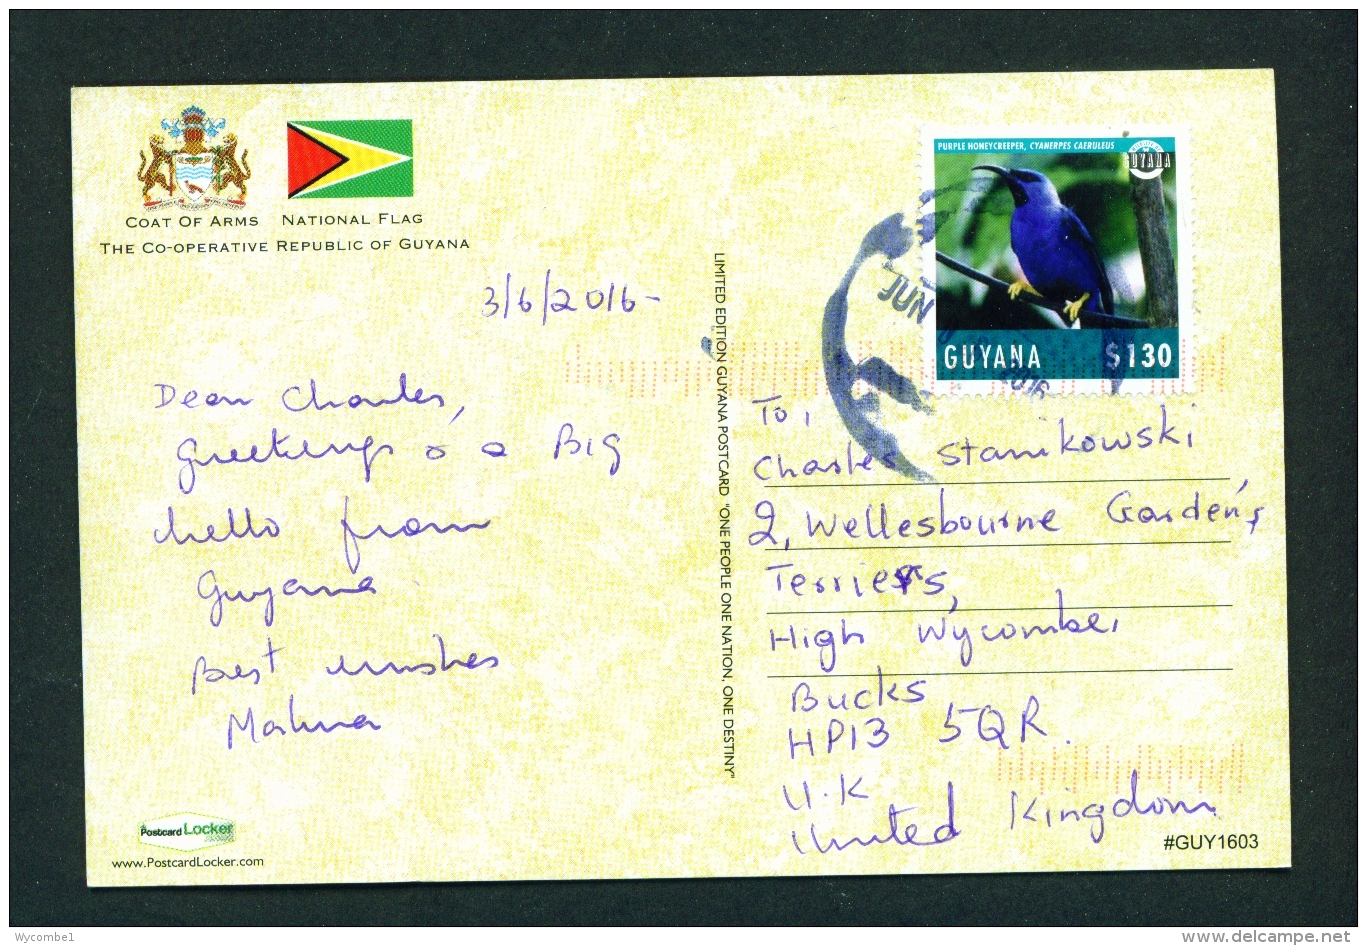 COAT OF ARMS NATIONAL FLAG
THE CO-OPERATIVE REPUBLIC OF GUYANA
3/6/2016-
Dear Charles,
Greetings & a BIG
hello from
Guyana
Best wishes
PostcardLocker
www.PostcardLocker.com
LIMITED EDITION GUYANA POSTCARD "ONE PEOPLE ONE NATION, ONE DESTINY"
PURPLE HONEYCREEPER, CYANERPES CAERULEUS
GUYANA
GUYANA $130
JUN
2016
To,
Charles Stanikowski
2, Wellesbourne Gardens,
Terriers,
High Wycombe,
Bucks
HP13 5QR.
U.K
United Kingdom.
#GUY1603
Wycombe1
www.delcampe.net